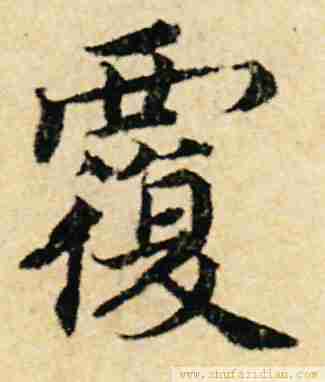 覆
www.shufazidian.com